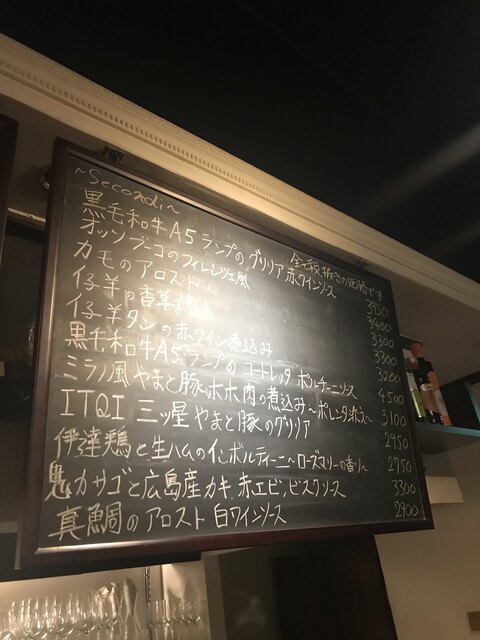 ~Secondi~
全て税抜きの価格です
黒毛和牛A5ランプのグリリア 赤ワインソース 3950
オッソブーコのフィレンツェ風 3400
カモのアロスト 3300
仔羊の香草焼き 3300
仔羊タンの赤ワイン煮込み 3200
黒毛和牛A5ランプのコートレッタ ポルチーニソース 4500
ミラノ風やまと豚ホホ肉の煮込み～ポレンタ添え～ 3100
ITQI 三ツ星やまと豚のグリリア 2950
伊達鶏と生ハムのインボルティーニ～ローズマリーの香り～ 2750
鬼カサゴと広島産カキ、赤エビ、ビスクソース 3300
真鯛のアロスト 白ワインソース 2900